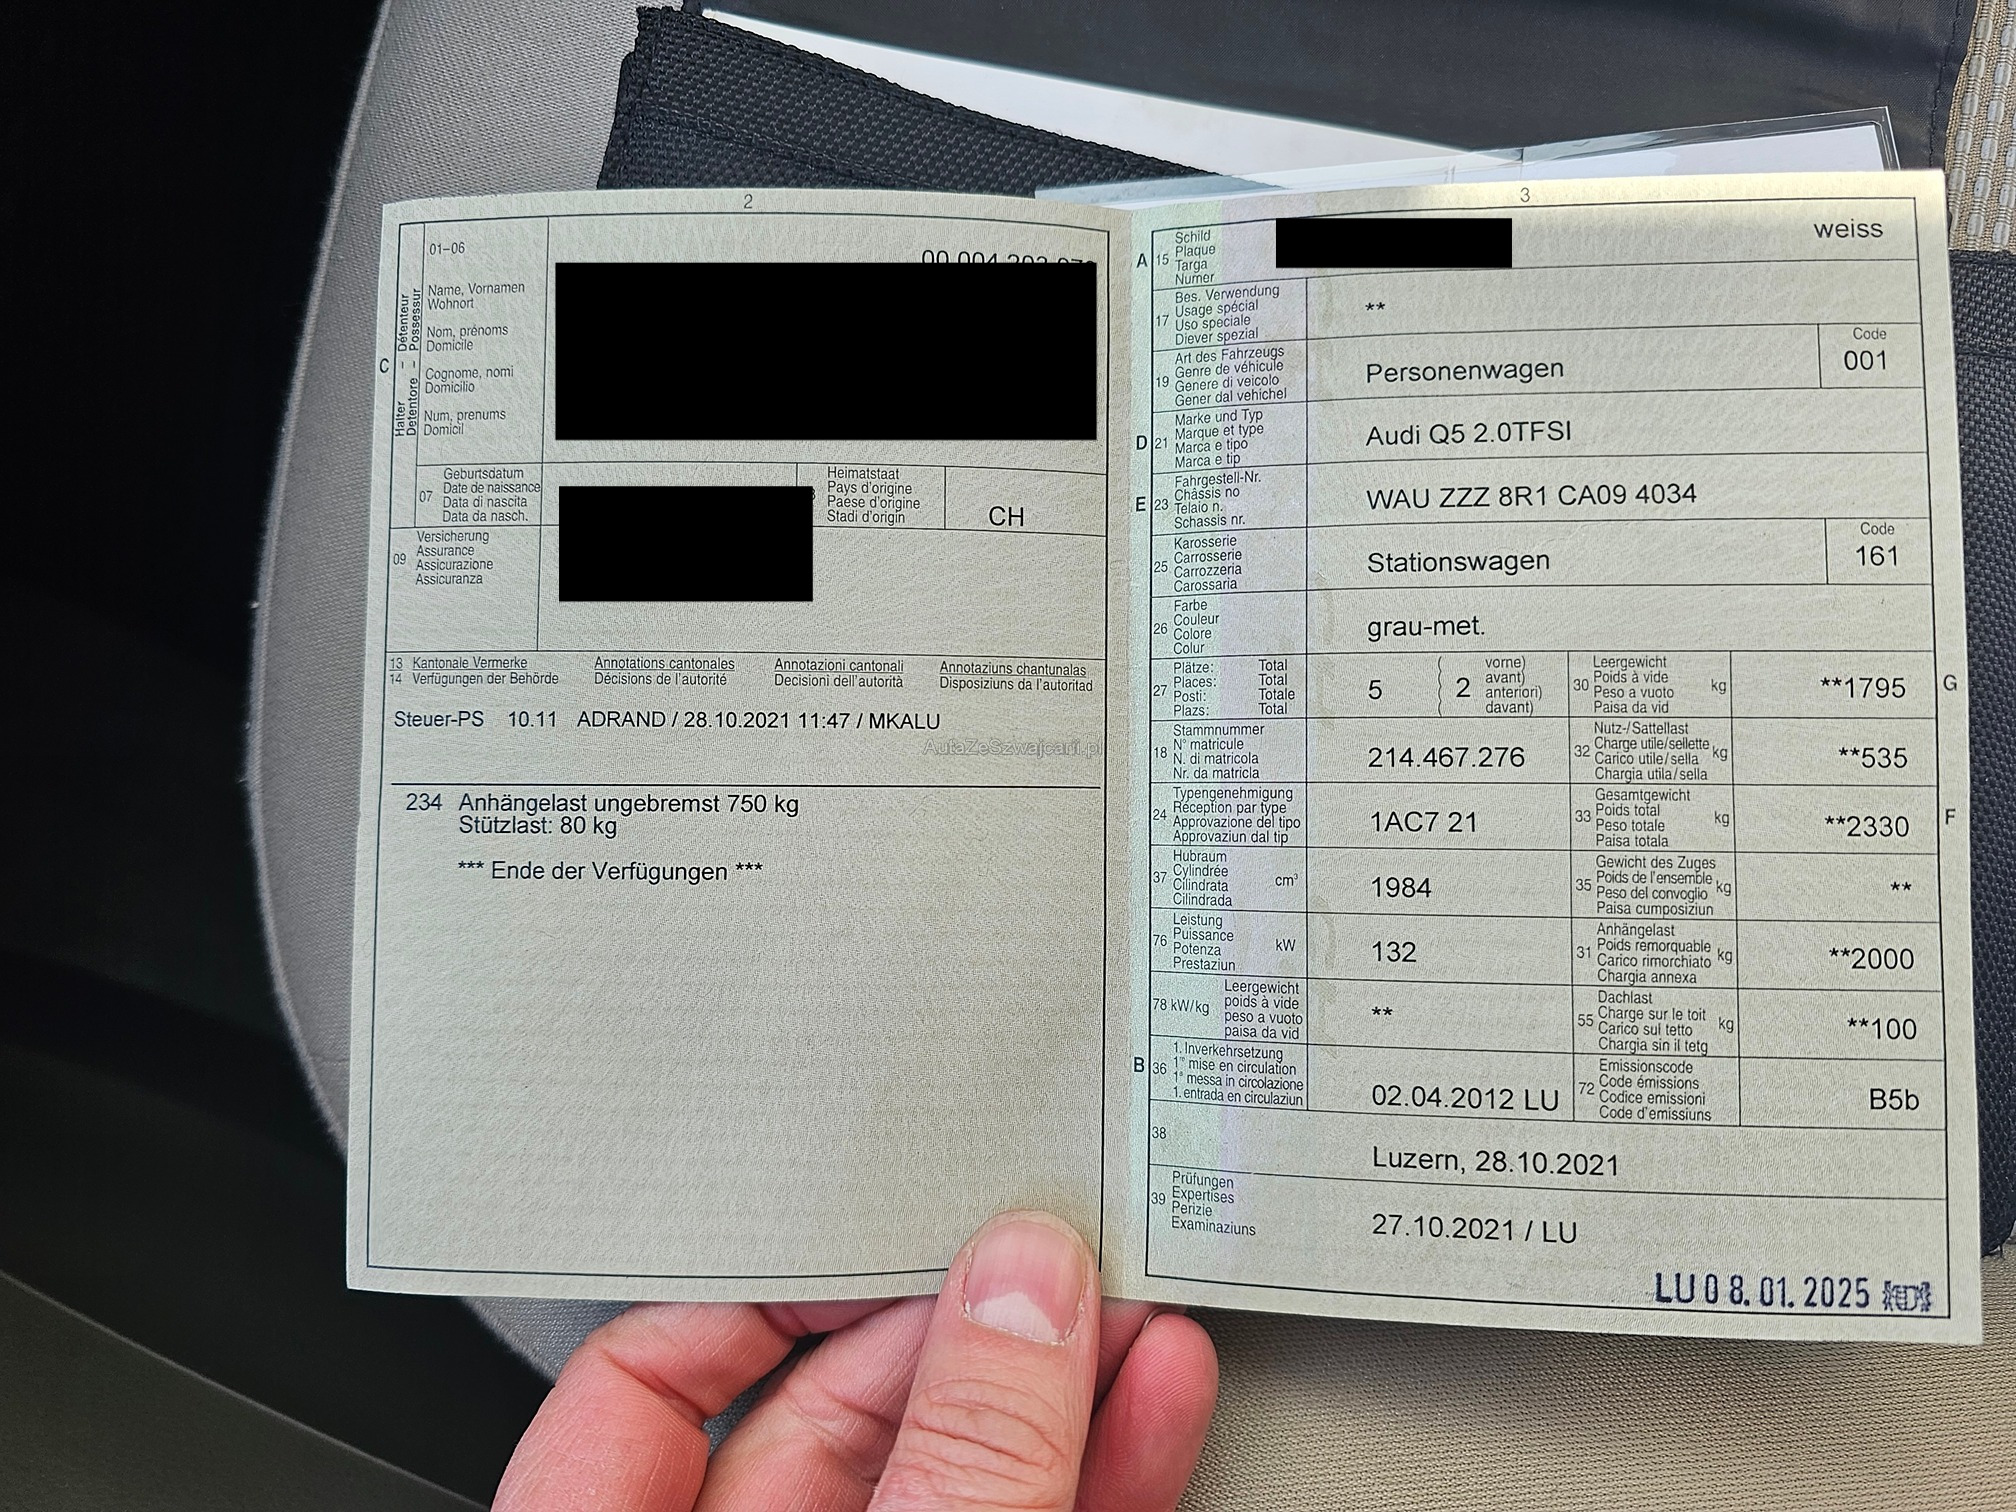 2
01-06
Name, Vornamen
Wohnort
Nom, prénoms
Domicile
Cognome, nomi
Domicilio
Num, prenums
Domicil
C
Halter – Détenteur
Detentore – Possessur
07
Geburtsdatum
Date de naissance
Data di nascita
Data da nasch.
Heimatstaat
Pays d'origine
Paese d'origine
Stadi d'origin
CH
09
Versicherung
Assurance
Assicurazione
Assicuranza
13 Kantonale Vermerke Annotations cantonales Annotazioni cantonali Annotaziuns chantunalas
14 Verfügungen der Behörde Décisions de l'autorité Decisioni dell'autorità Disposiziuns da l'autoritad
Steuer-PS 10.11 ADRAND / 28.10.2021 11:47 / MKALU
AutaZeSzwajcarii.pl
234 Anhängelast ungebremst 750 kg
Stützlast: 80 kg
*** Ende der Verfügungen ***
3
A 15
Schild
Plaque
Targa
Numer
weiss
17
Bes. Verwendung
Usage spécial
Uso speciale
Diever spezial
**
19
Art des Fahrzeugs
Genre de véhicule
Genere di veicolo
Gener dal vehichel
Personenwagen
Code
001
D 21
Marke und Typ
Marque et type
Marca e tipo
Marca e tip
Audi Q5 2.0TFSI
E 23
Fahrgestell-Nr.
Châssis no
Telaio n.
Schassis nr.
WAU ZZZ 8R1 CA09 4034
25
Karosserie
Carrosserie
Carrozzeria
Carossaria
Stationswagen
Code
161
26
Farbe
Couleur
Colore
Colur
grau-met.
27
Plätze: Total
Places: Total
Posti: Totale
Plazs: Total
5 ( 2 vorne)
avant)
anteriori)
davant)
30
Leergewicht
Poids à vide
Peso a vuoto
Paisa da vid
kg
**1795
G
18
Stammnummer
N° matricule
N. di matricola
Nr. da matricla
214.467.276
32
Nutz-/Sattellast
Charge utile/sellette
Carico utile/sella
Chargia utila/sella
kg
**535
24
Typengenehmigung
Réception par type
Approvazione del tipo
Approvaziun dal tip
1AC7 21
33
Gesamtgewicht
Poids total
Peso totale
Paisa totala
kg
**2330
F
37
Hubraum
Cylindrée
Cilindrata
Cilindrada
cm³
1984
35
Gewicht des Zuges
Poids de l'ensemble
Peso del convoglio
Paisa cumposiziun
kg
**
76
Leistung
Puissance
Potenza
Prestaziun
kW
132
31
Anhängelast
Poids remorquable
Carico rimorchiato
Chargia annexa
kg
**2000
78 kW/kg
Leergewicht
poids à vide
peso a vuoto
paisa da vid
**
55
Dachlast
Charge sur le toit
Carico sul tetto
Chargia sin il tetg
kg
**100
B 36
1. Inverkehrsetzung
1re mise en circulation
1a messa in circolazione
1. entrada en circulaziun
02.04.2012 LU
72
Emissionscode
Code émissions
Codice emissioni
Code d'emissiuns
B5b
38
Luzern, 28.10.2021
39
Prüfungen
Expertises
Perizie
Examinaziuns
27.10.2021 / LU
LU 0 8. 01. 2025